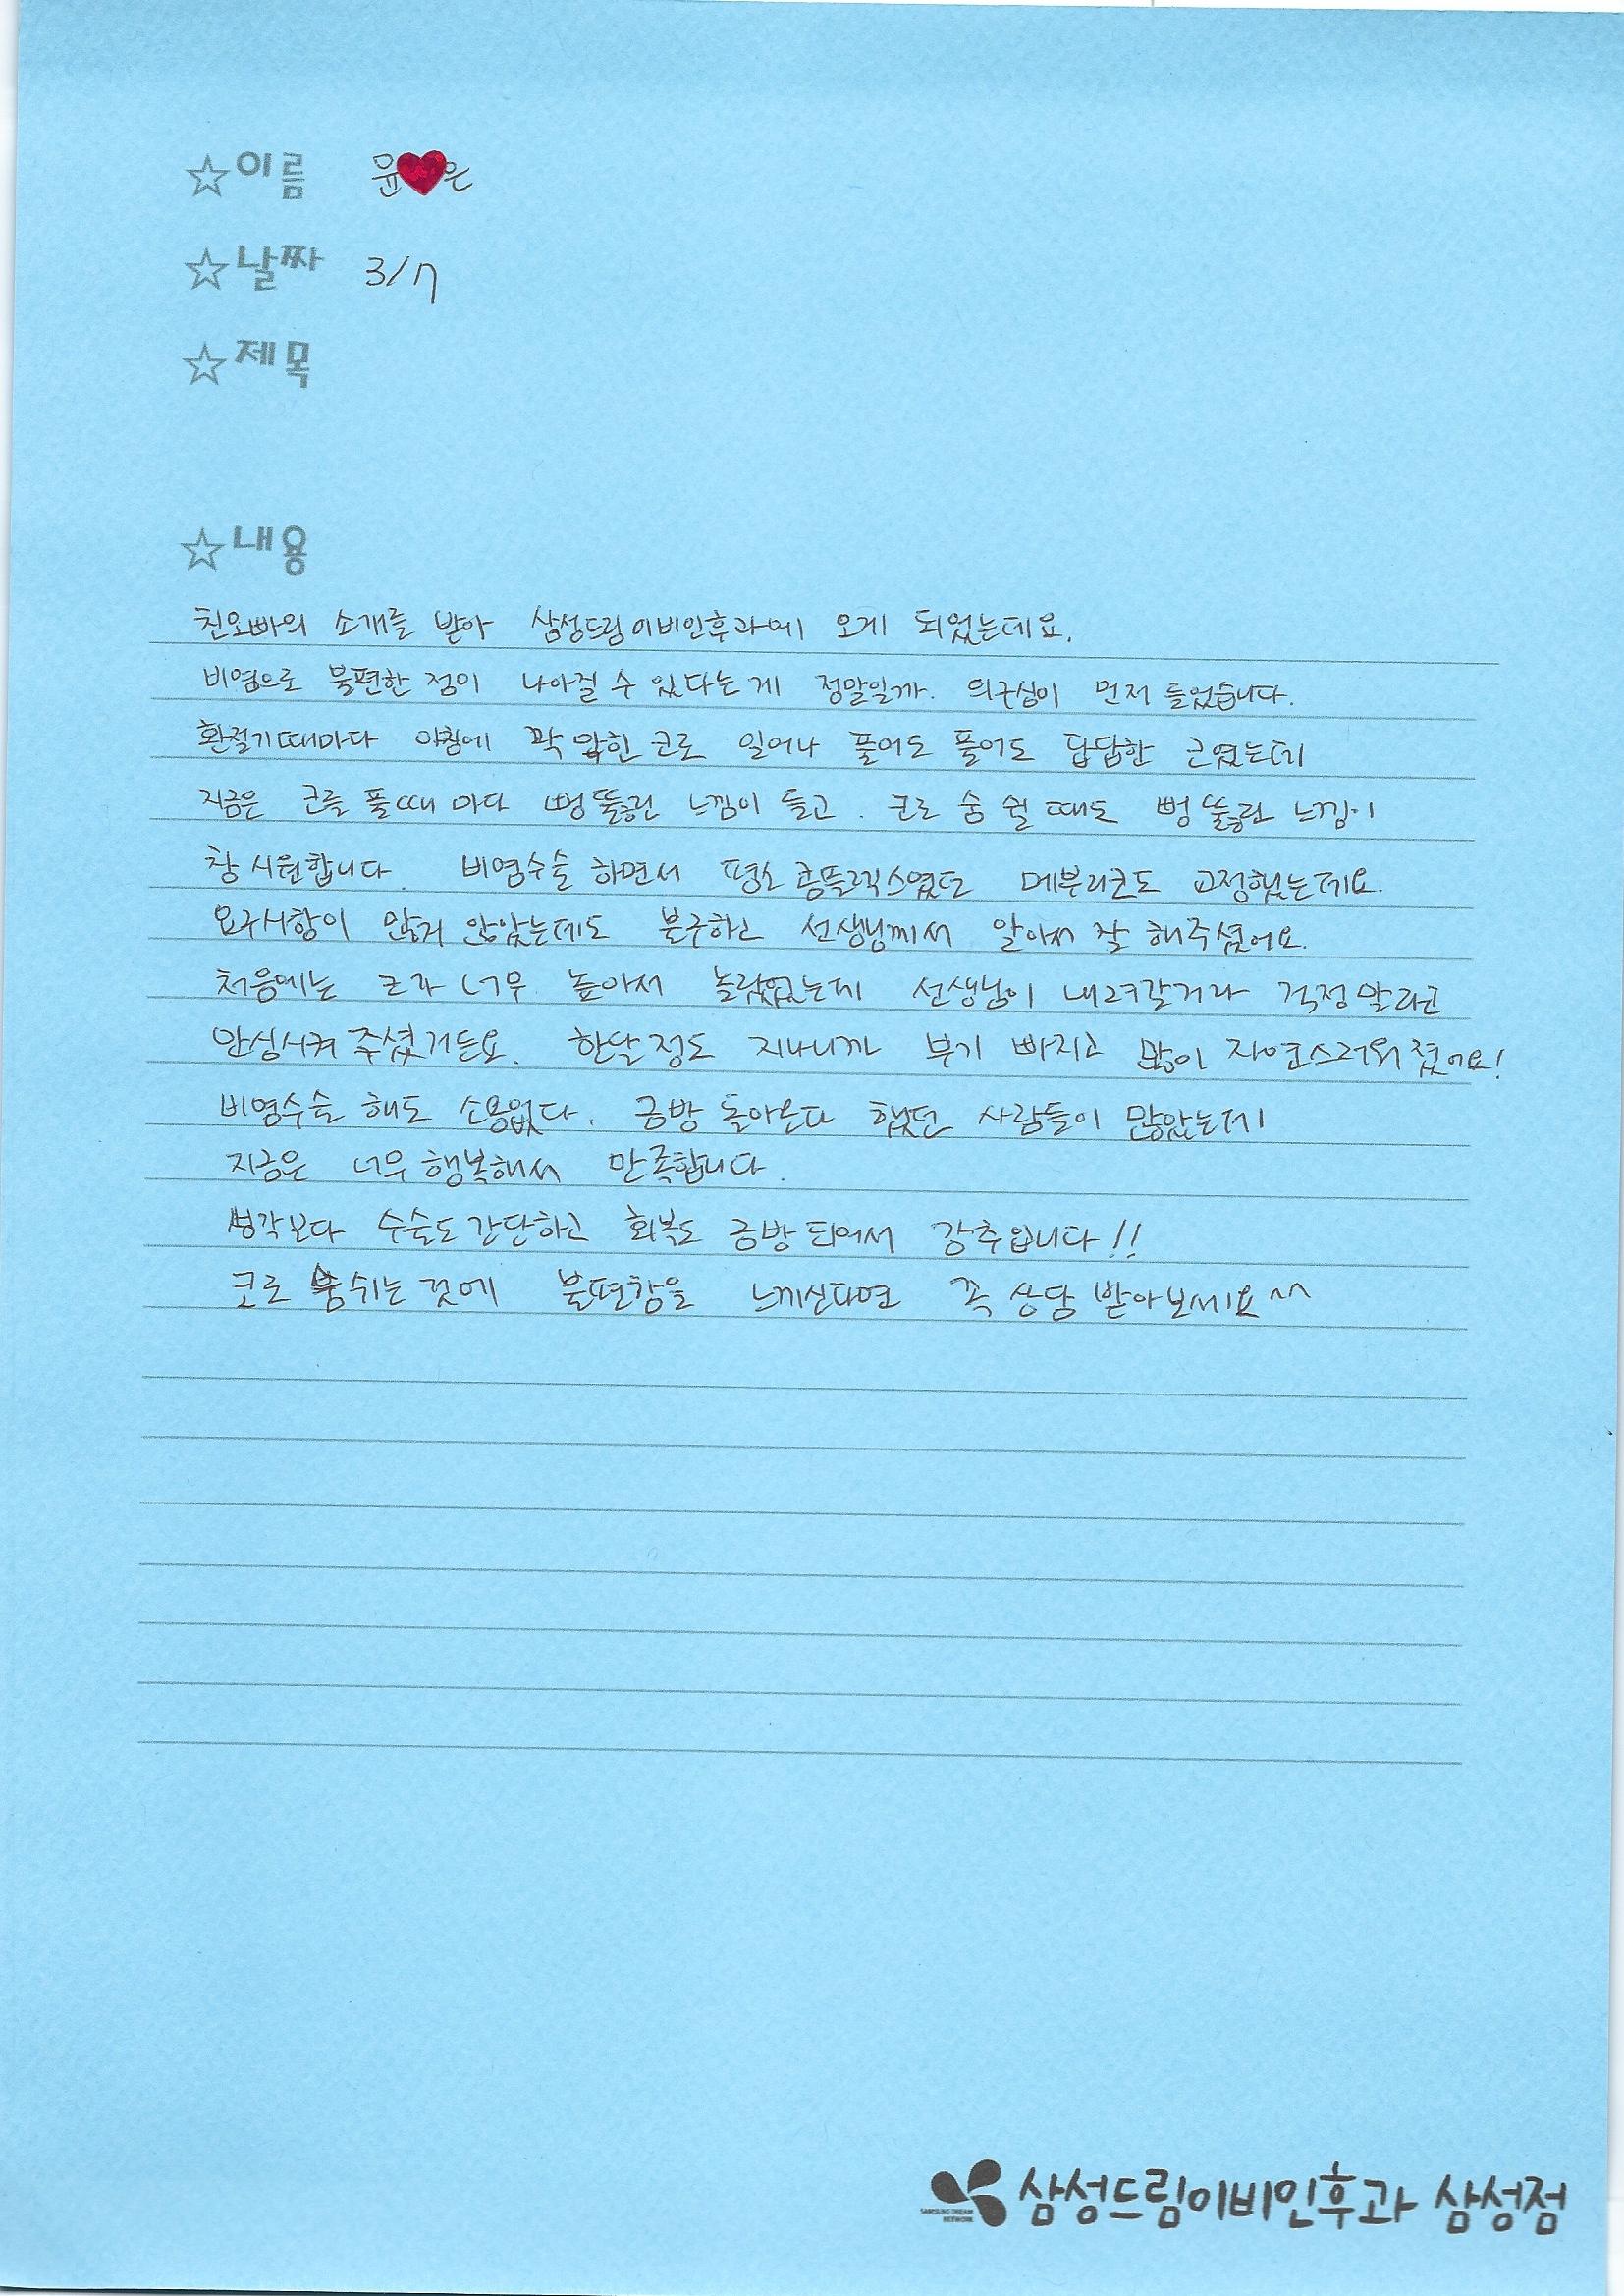 ☆이름 윤♥은
☆날짜 3/7
☆제목
☆내용
친오빠의 소개를 받아 삼성드림이비인후과에 오게 되었는데요.
비염으로 불편한 점이 나아질 수 있다는게 정말일까. 의구심이 먼저 들었습니다.
환절기때마다 아침에 꽉 막힌 코로 일어나 풀어도 풀어도 답답한 코였는데
지금은 코를 풀때 마다 뻥 뚫린 느낌이 들고. 코로 숨 쉴 때도 뻥 뚫린 느낌이
참 시원합니다. 비염수술 하면서 평소 콤플렉스였던 메부리코도 교정했는데요.
요구사항이 많지 않았는데도 불구하고 선생님께서 알아서 잘 해주셨어요.
처음에는 코가 너무 높아서 놀랐었는데 선생님이 내려갈거라 걱정말라고
안심시켜 주셨거든요. 한달정도 지나니까 부기 빠지고 많이 자연스러워졌어요!
비염수술 해도 소용없다. 금방 돌아온다 했던 사람들이 많았는데
지금은 너무 행복해서 만족합니다.
생각보다 수술도 간단하고 회복도 금방 되어서 강추입니다!!
코로 숨쉬는 것에 불편함을 느끼신다면 꼭 상담 받아보세요^^
SAMSUNG DREAM NETWORK
삼성드림이비인후과 삼성점